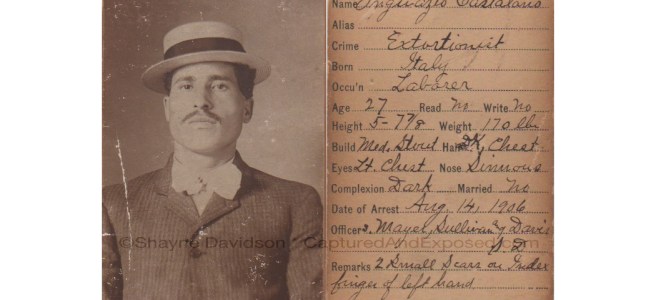 Name
Alias
Crime Extortionist
Born Italy
Occu'n Laborer
Age 27 Read No Write No
Height 5-7 7/8 Weight 170 lbs
Build Med. Stout Hair Dk. Chest.
Eyes Lt. Chest Nose Sinuous
Complexion Dark Married No
Date of Arrest Aug. 14, 1906
Officers Mayer, Sullivan & Davis
S.D.
Remarks 2 Small Scars on Index
finger of left hand
© Shayne Davidson / CapturedAndExposed.com